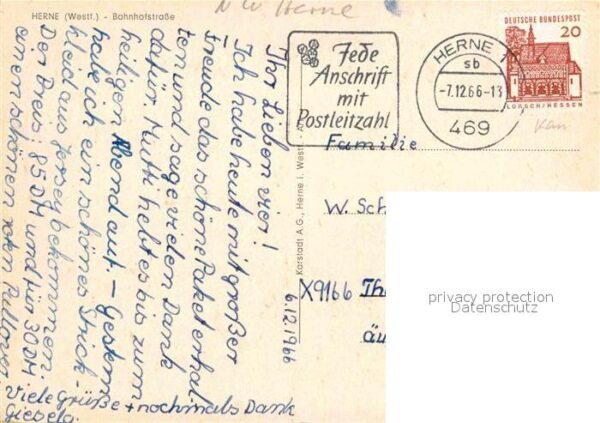 HERNE (Westf.) - Bahnhofstraße
NW Herne
Jede
Anschrift
mit
Postleitzahl
HERNE
sb
-7.12.66-13
469
DEUTSCHE BUNDESPOST
20
LORSCH/HESSEN
Karstadt A.G., Herne i. Westf.
6.12.1966
Ihr Lieben vier!
Ich habe heute mit großer
Freude das schöne Paket erhal
ten und sage vielen Dank
dafür. Mutti hebt es bis zum
heiligen Abend auf. - Gestern
habe ich ein schönes Strick-
kleid aus Jersey bekommen.
Der Preis: 85 DM und für 30 DM
einen schönen roten Pullover.
Viele Grüße + nochmals Dank
Giesela.
Familie
W. Sch
X9166 Th
privacy protection
Datenschutz